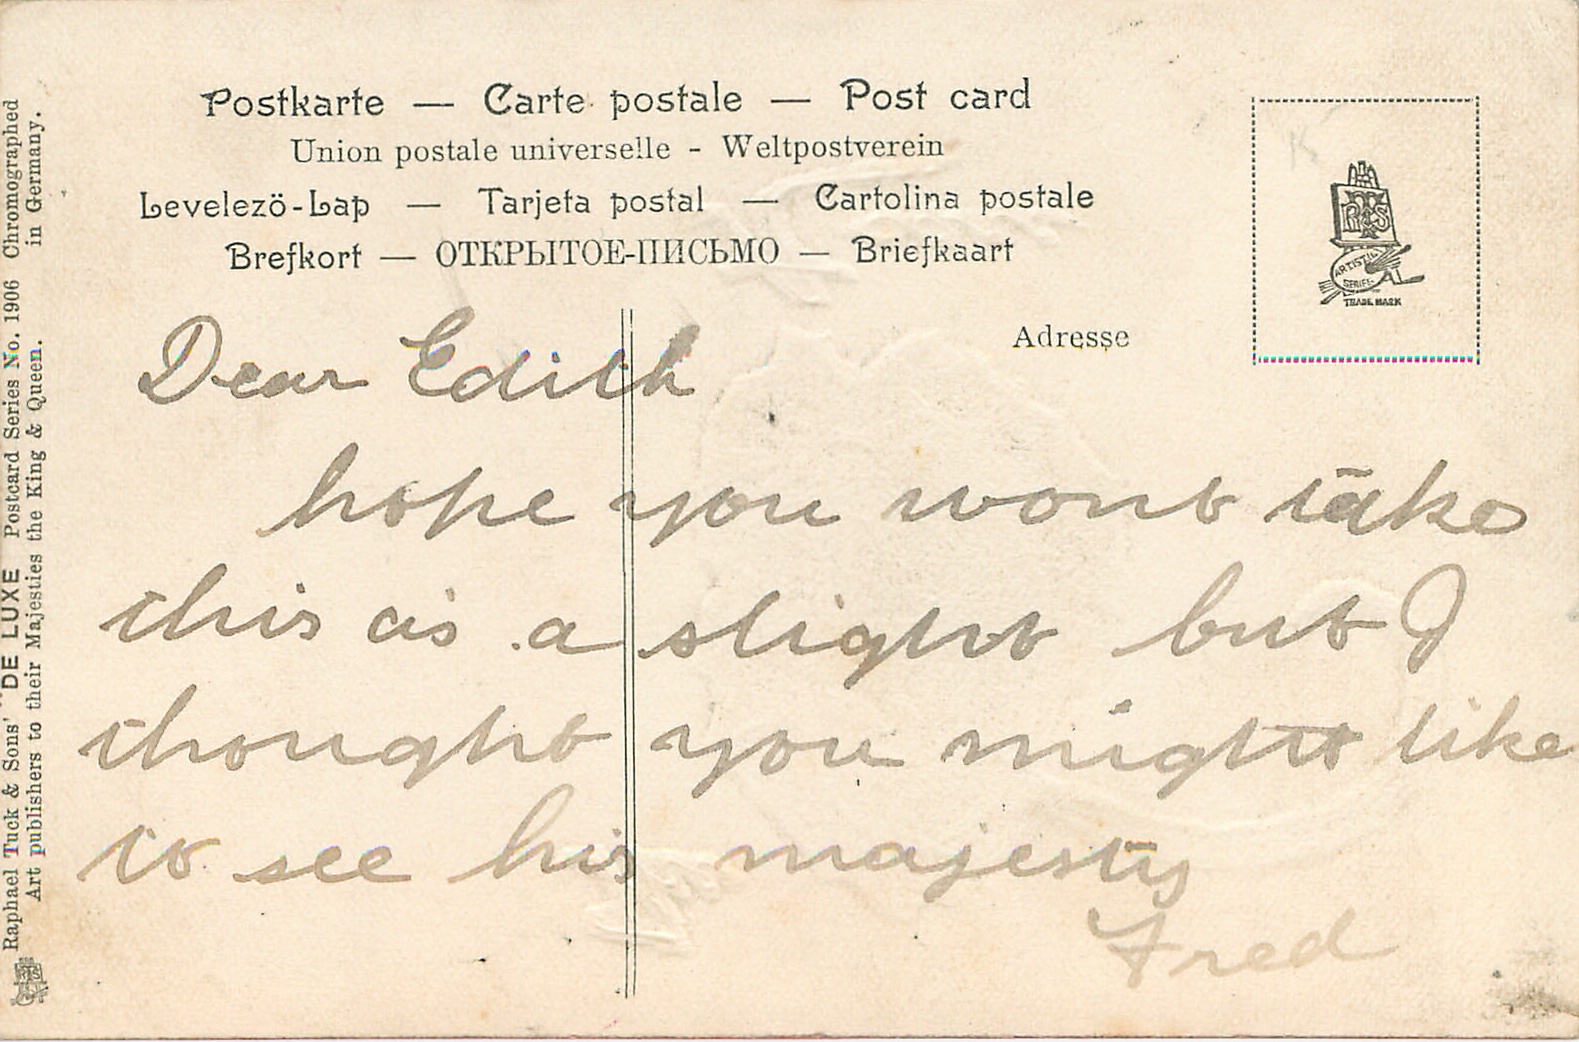 Postkarte — Carte postale — Post card
Union postale universelle - Weltpostverein
Levelezö-Lap — Tarjeta postal — Cartolina postale
Brefkort — ОТКРЫТОЕ-ПИСЬМО — Briefkaart
Adresse
R T & S
ARTISTIC
SERIES
TRADE MARK
K
Dear Edith
hope you wont take
this as a slight but I
thought you might like
to see his majesty
Fred
Raphael Tuck & Sons' "DE LUXE" Postcard Series No. 1906 Chromographed
Art publishers to their Majesties the King & Queen. in Germany.